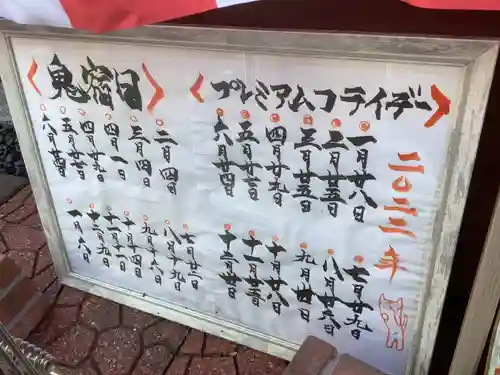 二〇二二年
〈プレミアムフライデー〉
一月廿八日
二月廿五日
三月廿五日
四月廿九日
五月廿七日
六月廿四日
七月廿九日
八月廿六日
九月卅日
十月廿八日
十一月廿五日
十二月卅日
〈鬼宿日〉
二月四日
三月四日
四月一日
四月廿九日
五月廿七日
六月廿四日
七月廿二日
八月十九日
九月十六日
十月十四日
十一月十一日
十二月九日
一月六日